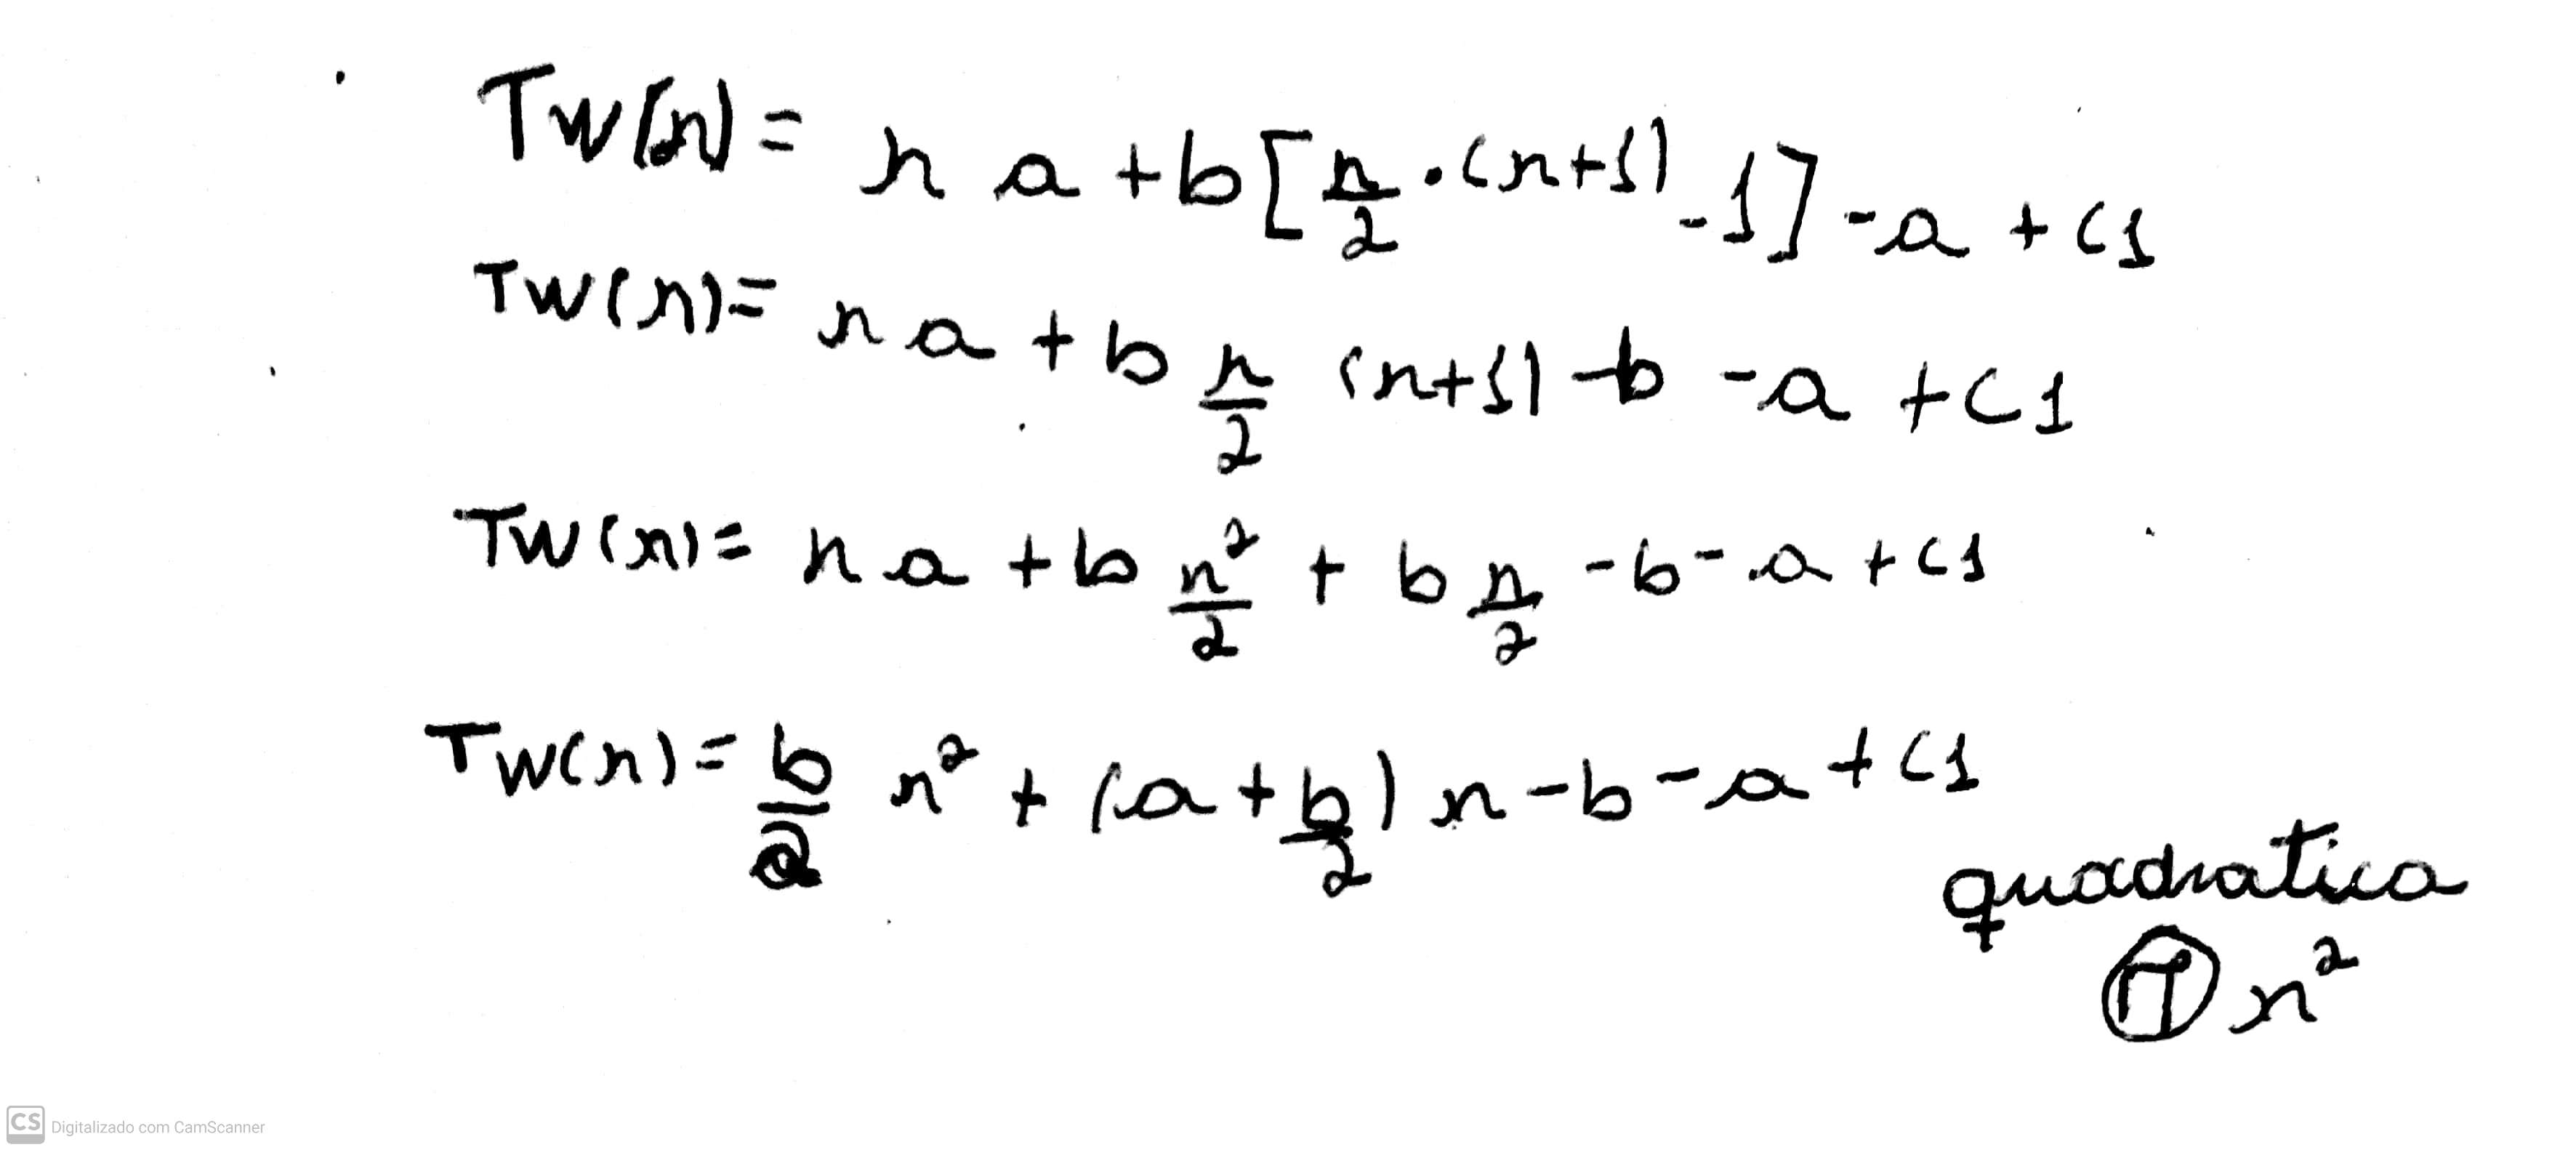 Tw(n) = n a + b [ n/2 · (n+1) - 1 ] - a + C1
Tw(n) = n a + b n/2 (n+1) - b - a + C1
Tw(n) = n a + b n²/2 + b n/2 - b - a + C1
Tw(n) = b/2 n² + (a + b/2) n - b - a + C1
quadratica
n²
CS Digitalizado com CamScanner